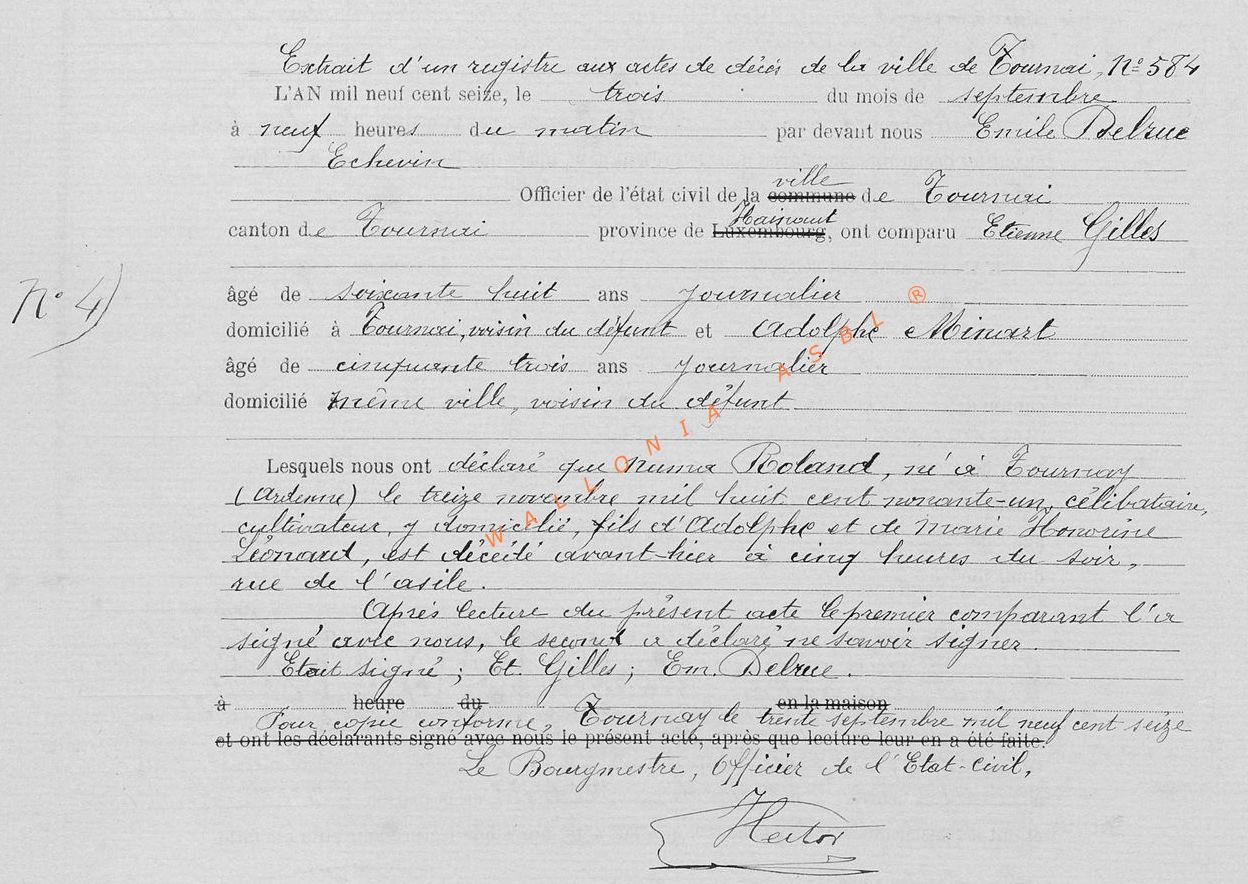 Extrait d'un registre aux actes de décès de la ville de Tournai, N° 584
L'AN mil neuf cent seize, le trois du mois de septembre
à neuf heures du matin par devant nous Emile Delrue
Echevin
ville
Officier de l'état civil de la commune de Tournai
Hainaut
canton de Tournai province de Luxembourg, ont comparu Etienne Gilles
N° 4)
âgé de soixante huit ans journalier
domicilié à Tournai, voisin du défunt et Adolphe Minart
âgé de cinquante trois ans journalier
domicilié même ville, voisin du défunt
Lesquels nous ont déclaré que Numa Roland, né à Tournay
(Ardenne) le treize novembre mil huit cent nonante-un, célibataire,
cultivateur, y domicilié, fils d'Adolphe et de Marie Honorine
Léonard, est décédé avant-hier à cinq heures du soir,
rue de l'asile.
Après lecture du présent acte le premier comparant l'a
signé avec nous, le second a déclaré ne savoir signer.
Etait signé ; Et. Gilles ; Em. Delrue.
à heure du en la maison
Pour copie conforme, Tournay le trente septembre mil neuf cent seize
et ont les déclarants signé avec nous le présent acte, après que lecture leur en a été faite.
Le Bourgmestre, Officier de l'Etat-Civil,
Hector
WALLONIA ASBL ®